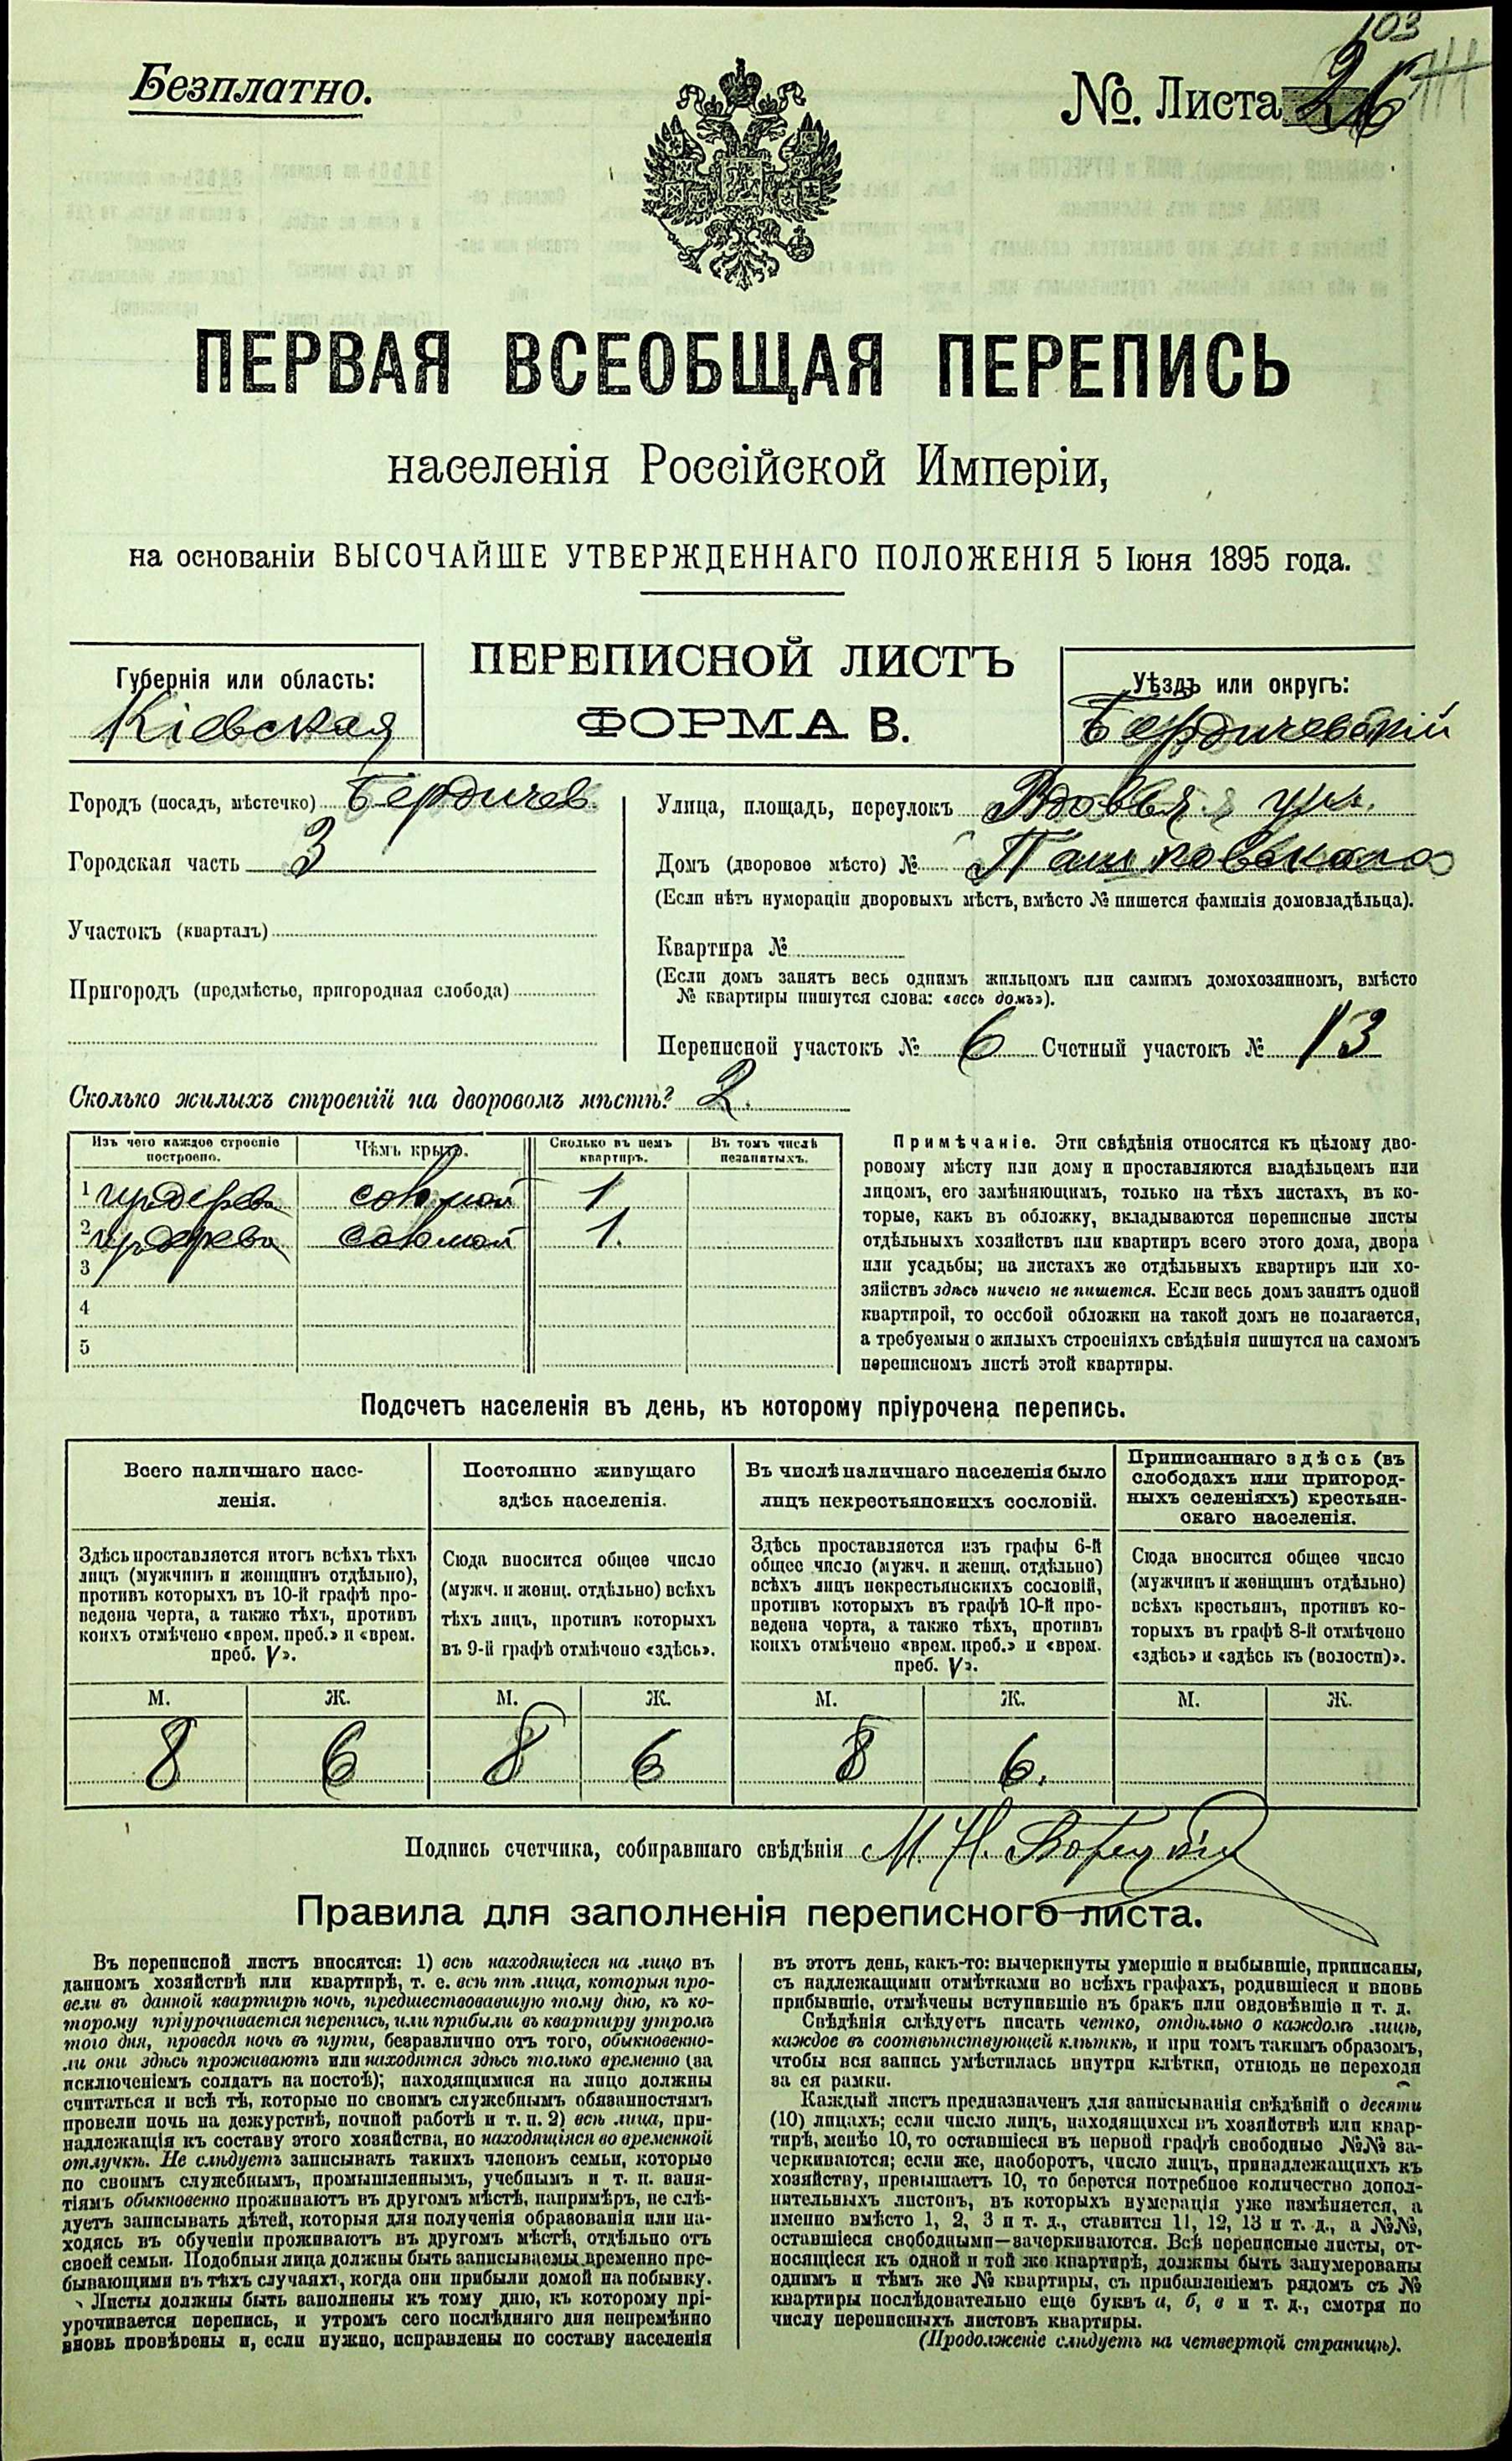 103
Безплатно.
№. Листа 26
ПЕРВАЯ ВСЕОБЩАЯ ПЕРЕПИСЬ
населенія Россійской Имперіи,
на основаніи ВЫСОЧАЙШЕ УТВЕРЖДЕННАГО ПОЛОЖЕНІЯ 5 Іюня 1895 года.
ПЕРЕПИСНОЙ ЛИСТЪ
ФОРМА В.
Губернія или область:
Кіевская
Уѣздъ или округъ:
Бердичевскій
Городъ (посадъ, мѣстечко) Бердичев.
Городская часть 3
Участокъ (кварталъ)
Пригородъ (предмѣстье, пригородная слобода)
Улица, площадь, переулокъ Вдовья ул.
Домъ (дворовое мѣсто) № Пашковскаго
(Если нѣтъ нумераціи дворовыхъ мѣстъ, вмѣсто № пишется фамилія домовладѣльца).
Квартира №
(Если домъ занятъ весь однимъ жильцомъ или самимъ домохозяиномъ, вмѣсто
№ квартиры пишутся слова: «весь домъ»).
Переписной участокъ № 6 Счетный участокъ № 13
Сколько жилыхъ строеній на дворовомъ мѣстѣ? 2.
Изъ чего каждое строеніе
построено.
Чѣмъ крыто.
Сколько въ немъ
квартиръ.
Въ томъ числѣ
незанятыхъ.
1 дерева соломой 1
2 дерева соломой 1.
3
4
5
Примѣчаніе. Эти свѣдѣнія относятся къ цѣлому дво-
ровому мѣсту или дому и проставляются владѣльцемъ или
лицомъ, его замѣняющимъ, только на тѣхъ листахъ, въ ко-
торые, какъ въ обложку, вкладываются переписные листы
отдѣльныхъ хозяйствъ или квартиръ всего этого дома, двора
или усадьбы; на листахъ же отдѣльныхъ квартиръ или хо-
зяйствъ здѣсь ничего не пишется. Если весь домъ занятъ одной
квартирой, то особой обложки на такой домъ не полагается,
а требуемыя о жилыхъ строеніяхъ свѣдѣнія пишутся на самомъ
переписномъ листѣ этой квартиры.
Подсчетъ населенія въ день, къ которому пріурочена перепись.
Всего наличнаго насе-
ленія.
Здѣсь проставляется итогъ всѣхъ тѣхъ
лицъ (мужчинъ и женщинъ отдѣльно),
противъ которыхъ въ 10-й графѣ про-
ведена черта, а также тѣхъ, противъ
коихъ отмѣчено «врем. преб.» и «врем.
преб. V».
М. Ж.
8 6
Постоянно живущаго
здѣсь населенія.
Сюда вносится общее число
(мужч. и женщ. отдѣльно) всѣхъ
тѣхъ лицъ, противъ которыхъ
въ 9-й графѣ отмѣчено «здѣсь».
М. Ж.
8 6
Въ числѣ наличнаго населенія было
лицъ некрестьянскихъ сословій.
Здѣсь проставляется изъ графы 6-й
общее число (мужч. и женщ. отдѣльно)
всѣхъ лицъ некрестьянскихъ сословій,
противъ которыхъ въ графѣ 10-й про-
ведена черта, а также тѣхъ, противъ
коихъ отмѣчено «врем. преб.» и «врем.
преб. V».
М. Ж.
8 6.
Приписаннаго здѣсь (въ
слободахъ или пригород-
ныхъ селеніяхъ) крестьян-
скаго населенія.
Сюда вносится общее число
(мужчинъ и женщинъ отдѣльно)
всѣхъ крестьянъ, противъ ко-
торыхъ въ графѣ 8-й отмѣчено
«здѣсь» и «здѣсь къ (волости)».
М. Ж.
Подпись счетчика, собиравшаго свѣдѣнія М. Н.
Правила для заполненія переписного листа.
Въ переписной листъ вносятся: 1) всѣ находящіеся на лицо въ
данномъ хозяйствѣ или квартирѣ, т. е. всѣ тѣ лица, которыя про-
вели въ данной квартирѣ ночь, предшествовавшую тому дню, къ ко-
торому пріурочивается перепись, или прибыли въ квартиру утромъ
того дня, проведя ночь въ пути, безразлично отъ того, обыкновенно-
ли они здѣсь проживаютъ или находятся здѣсь только временно (за
исключеніемъ солдатъ на постоѣ); находящимися на лицо должны
считаться и всѣ тѣ, которые по своимъ служебнымъ обязанностямъ
провели ночь на дежурствѣ, ночной работѣ и т. п. 2) всѣ лица, при-
надлежащія къ составу этого хозяйства, но находящіяся во временной
отлучкѣ. Не слѣдуетъ записывать такихъ членовъ семьи, которые
по своимъ служебнымъ, промышленнымъ, учебнымъ и т. п. заня-
тіямъ обыкновенно проживаютъ въ другомъ мѣстѣ, напримѣръ, не слѣ-
дуетъ записывать дѣтей, которыя для полученія образованія или на-
ходясь въ обученіи проживаютъ въ другомъ мѣстѣ, отдѣльно отъ
своей семьи. Подобныя лица должны быть записываемы временно пре-
бывающими въ тѣхъ случаяхъ, когда они прибыли домой на побывку.
Листы должны быть заполнены къ тому дню, къ которому прі-
урочивается перепись, и утромъ сего послѣдняго дня непремѣнно
вновь провѣрены и, если нужно, исправлены по составу населенія
въ этотъ день, какъ-то: вычеркнуты умершіе и выбывшіе, приписаны,
съ надлежащими отмѣтками во всѣхъ графахъ, родившіеся и вновь
прибывшіе, отмѣчены вступившіе въ бракъ или овдовѣвшіе и т. д.
Свѣдѣнія слѣдуетъ писать четко, отдѣльно о каждомъ лицѣ,
каждое въ соотвѣтствующей клѣткѣ, и при томъ такимъ образомъ,
чтобы вся запись умѣстилась внутри клѣтки, отнюдь не переходя
за ея рамки.
Каждый листъ предназначенъ для записыванія свѣдѣній о десяти
(10) лицахъ; если число лицъ, находящихся въ хозяйствѣ или квар-
тирѣ, менѣе 10, то оставшіеся въ первой графѣ свободные №№ за-
черкиваются; если же, наоборотъ, число лицъ, принадлежащихъ къ
хозяйству, превышаетъ 10, то берется потребное количество допол-
нительныхъ листовъ, въ которыхъ нумерація уже измѣняется, а
именно вмѣсто 1, 2, 3 и т. д., ставится 11, 12, 13 и т. д., а №№,
оставшіеся свободными—зачеркиваются. Всѣ переписные листы, от-
носящіеся къ одной и той же квартирѣ, должны быть занумерованы
однимъ и тѣмъ же № квартиры, съ прибавленіемъ рядомъ съ №
квартиры послѣдовательно еще буквъ а, б, в и т. д., смотря по
числу переписныхъ листовъ квартиры.
(Продолженіе слѣдуетъ на четвертой страницѣ).